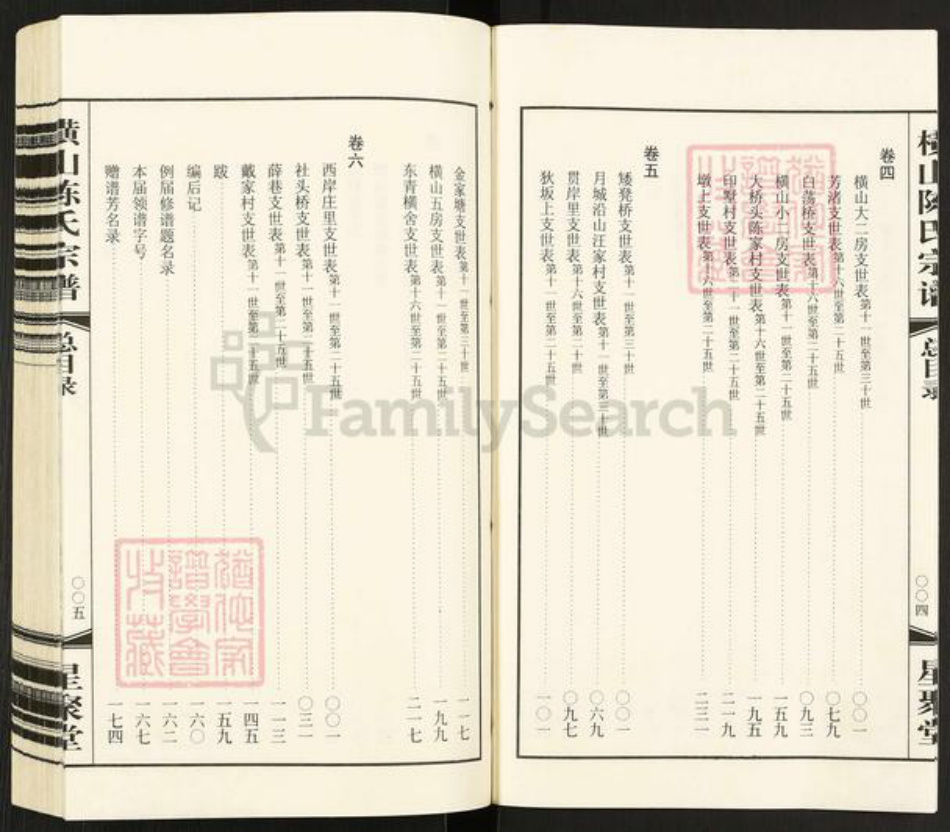 横山陈氏宗谱
总目录
〇〇四
星聚堂
卷四
横山大二房支世表第十一世至第三十世 〇〇一
芳渚支世表第十六世至第二十五世 〇七九
白荡桥支世表第十六世至第二十五世 〇九三
横山小二房支世表第十一世至第二十五世 一五九
大桥头陈家村支世表第十六世至第二十五世 一九五
印墅村支世表第二十一世至第二十五世 二一九
墩上支世表第十六世至第二十五世 二三一
卷五
矮凳桥支世表第十一世至第三十世 〇〇一
月城沿山汪家村支世表第十一世至第三十世 〇六九
贯岸里支世表第十六世至第二十世 〇九七
狄坂上支世表第十一世至第二十五世 一〇一
金家塘支世表第十一世至第三十世 一一七
横山五房支世表第十一世至第二十五世 一九九
东青横舍支世表第十六世至第二十五世 二一七
卷六
西岸庄里支世表第十一世至第二十五世 〇〇一
社头桥支世表第十一世至第二十五世 〇三一
薛巷支世表第十一世至第二十五世 一一三
戴家村支世表第十一世至第二十五世 一四五
跋 一五九
编后记 一六〇
例届修谱题名录 一六二
本届领谱字号 一六七
赠谱芳名录 一七四
横山陈氏宗谱
总目录
〇〇五
星聚堂
FamilySearch